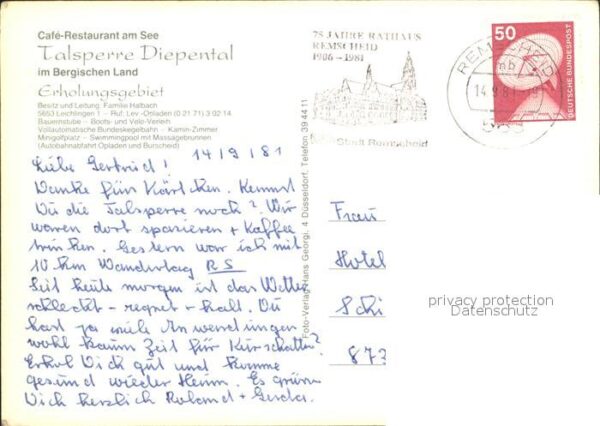 Café-Restaurant am See
Talsperre Diepental
im Bergischen Land
Erholungsgebiet
Besitz und Leitung: Familie Halbach
5653 Leichlingen 1 - Ruf: Lev.-Opladen (0 21 71) 3 02 14
Bauernstube - Boots- und Velo-Verleih
Vollautomatische Bundeskegelbahn - Kamin-Zimmer
Minigolfplatz - Swimmingpool mit Massagebrunnen
(Autobahnabfahrt Opladen und Burscheid)
75 JAHRE RATHAUS
REMSCHEID
1906 - 1981
Stadt Remscheid
REMSCHEID
14.9.81
50
DEUTSCHE BUNDESPOST
Foto-Verlag Hans Georgi, 4 Düsseldorf, Telefon 39 44 11
14/9/81
Liebe Gertrud!
Danke fürs Kärtchen. Kennst
Du die Talsperre noch? Wir
waren dort spazieren + Kaffee
trinken. Gestern war ich mit
10 km Wandertag RS
Seit heute morgen ist das Wetter
schlecht - regnet + kalt. Du
hast ja viele Anwendungen
wohl kaum Zeit für Kurschatten?
Erhol Dich gut und komme
gesund wieder Heim. Es grüßen
Dich herzlich Roland + Gerda.
Frau
Hotel
Schi
873
privacy protection
Datenschutz